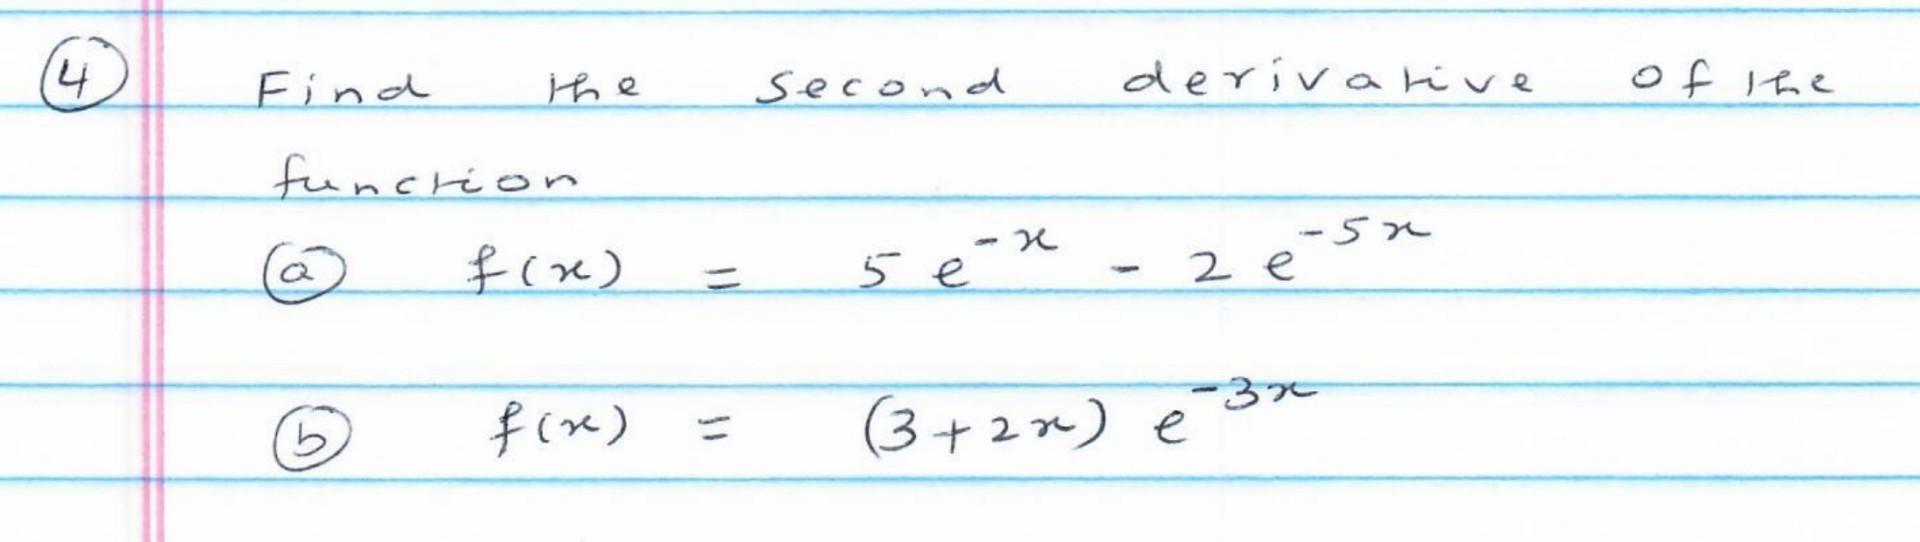 ④ Find the second derivative of the
function
ⓐ f(x) = 5e^{-x} - 2e^{-5x}
ⓑ f(x) = (3+2x) e^{-3x}